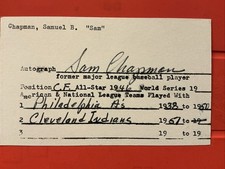 Chapman, Samuel B. "Sam"
Autograph Sam Chapman
former major league baseball player
Position C.F. All-Star 1946 World Series 19
American & National League Teams Played With
1 Philadelphia A's 1938 to 1951
2 Cleveland Indians 1951 to
3 19 to 19